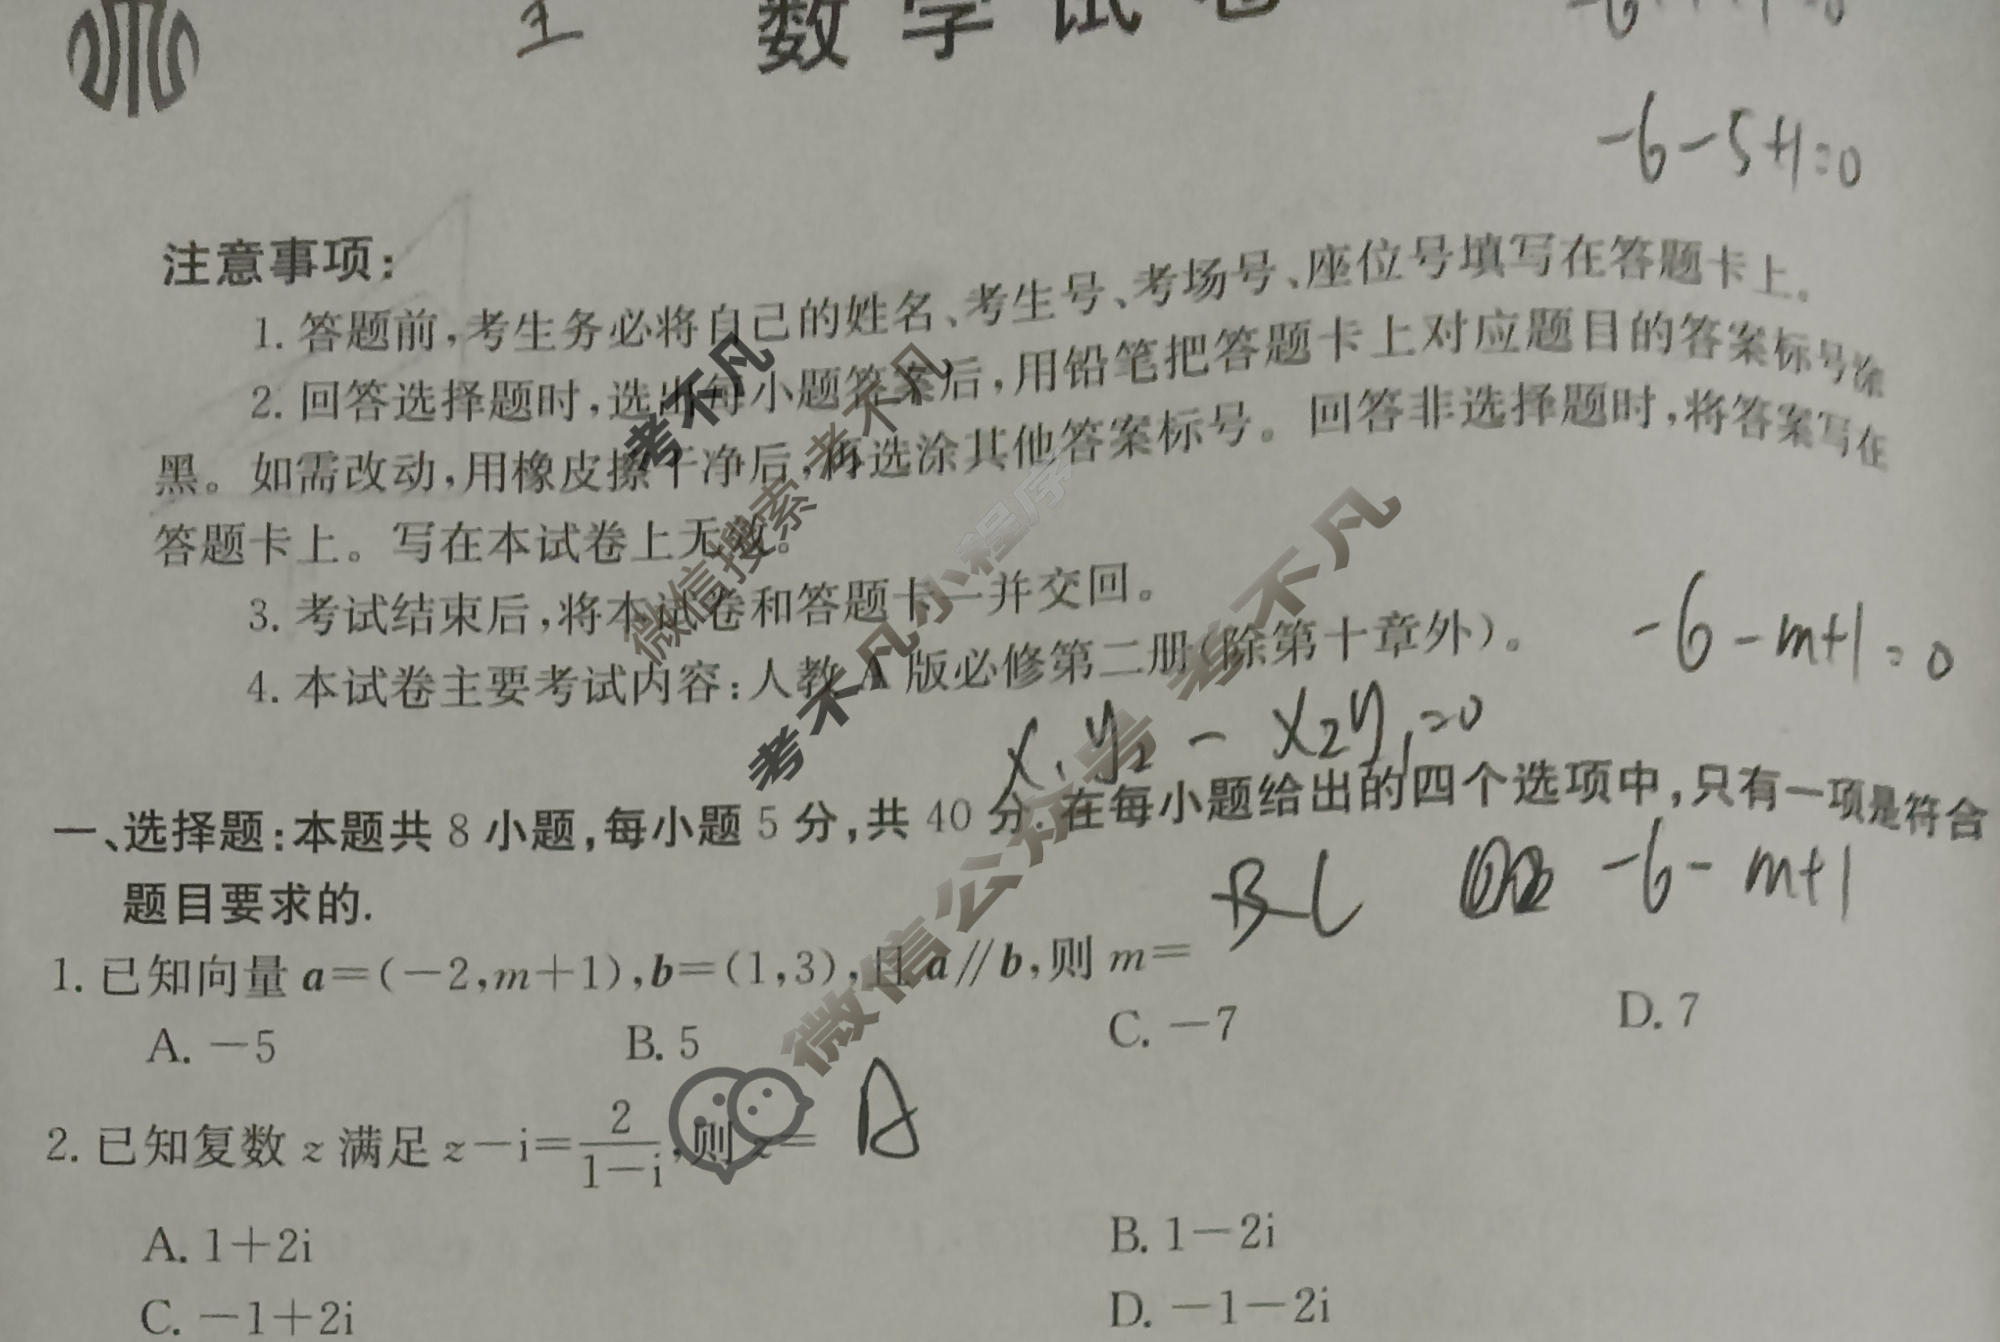 数学试卷
-6-5+1=0
注意事项:
1. 答题前,考生务必将自己的姓名、考生号、考场号、座位号填写在答题卡上。
2. 回答选择题时,选出每小题答案后,用铅笔把答题卡上对应题目的答案标号涂
黑。如需改动,用橡皮擦干净后,再选涂其他答案标号。回答非选择题时,将答案写在
答题卡上。写在本试卷上无效。
3. 考试结束后,将本试卷和答题卡一并交回。
4. 本试卷主要考试内容:人教 A 版必修第二册(除第十章外)。
-6-m+1=0
x₁y₂-x₂y₁=0
一、选择题:本题共 8 小题,每小题 5 分,共 40 分. 在每小题给出的四个选项中,只有一项是符合
题目要求的.
B C -6-m+1
1. 已知向量 a=(-2,m+1),b=(1,3),且 a∥b,则 m=
A. -5 B. 5 C. -7 D. 7
2. 已知复数 z 满足 z-i=2/(1-i),则 z= A
A. 1+2i B. 1-2i
C. -1+2i D. -1-2i
考不凡
微信搜索 考不凡
考不凡小程序
微信公众号 考不凡